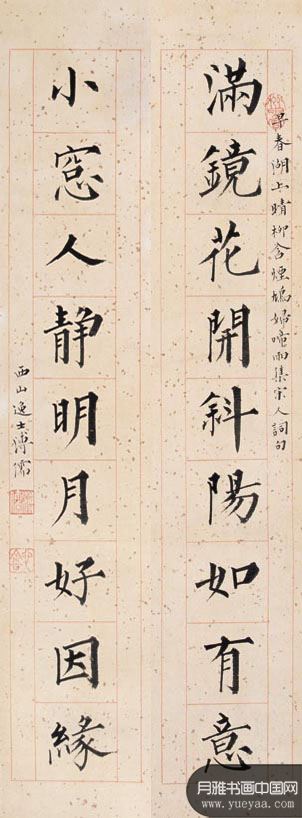 早春湖上晴柳含煙鳩婦啼雨集宋人詞句
滿鏡花開斜陽如有意
小窓人靜明月好因緣
西山逸士溥儒
月雅书画中国网
www.yueyaa.com